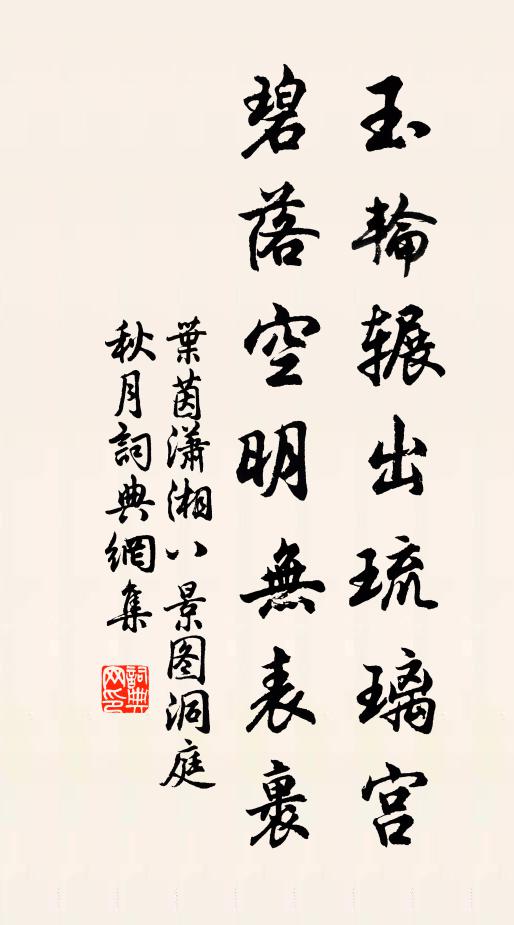 玉輪辗出琉璃宫
碧落空明無表裏
葉茵瀟湘八景图洞庭
秋月詞典網集
詞典网印